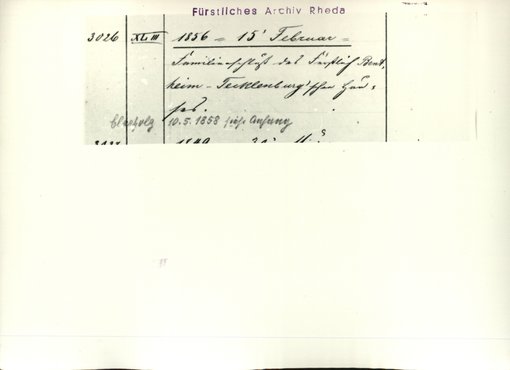 Fürstliches Archiv Rheda
3026 XLIII 1856 = 15' Februar =
Familienschluß des Fürstlich Bent,
heim-Tecklenburg'schen Hau=
ses.
10.5.1858 siehe Anhang